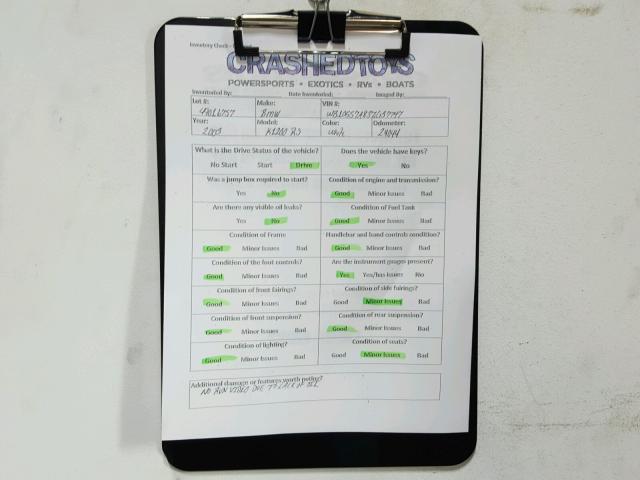 Inventory Check -
CRASHEDTOYS
POWERSPORTS • EXOTICS • RVs • BOATS
Inventoried By: Date Inventoried: Imaged By:
Lot #: Make: VIN #:
BMW
Year: Model: Color: Odometer:
2003 K1200 RS white 29044
What is the Drive Status of the vehicle? Does the vehicle have keys?
No Start Start Drive Yes No
Was a jump box required to start? Condition of engine and transmission?
Yes No Good Minor Issues Bad
Are there any visible oil leaks? Condition of Fuel Tank
Yes No Good Minor Issues Bad
Condition of Frame Handlebar and hand controls condition?
Good Minor Issues Bad Good Minor Issues Bad
Condition of the foot controls? Are the instrument gauges present?
Good Minor Issues Bad Yes Yes/has issues No
Condition of front fairings? Condition of side fairings?
Good Minor Issues Bad Good Minor Issues Bad
Condition of front suspension? Condition of rear suspension?
Good Minor Issues Bad Good Minor Issues Bad
Condition of lighting? Condition of seats?
Good Minor Issues Bad Good Minor Issues Bad
Additional damage or features worth noting?
NO RUN VIDEO DUE TO LACK OF